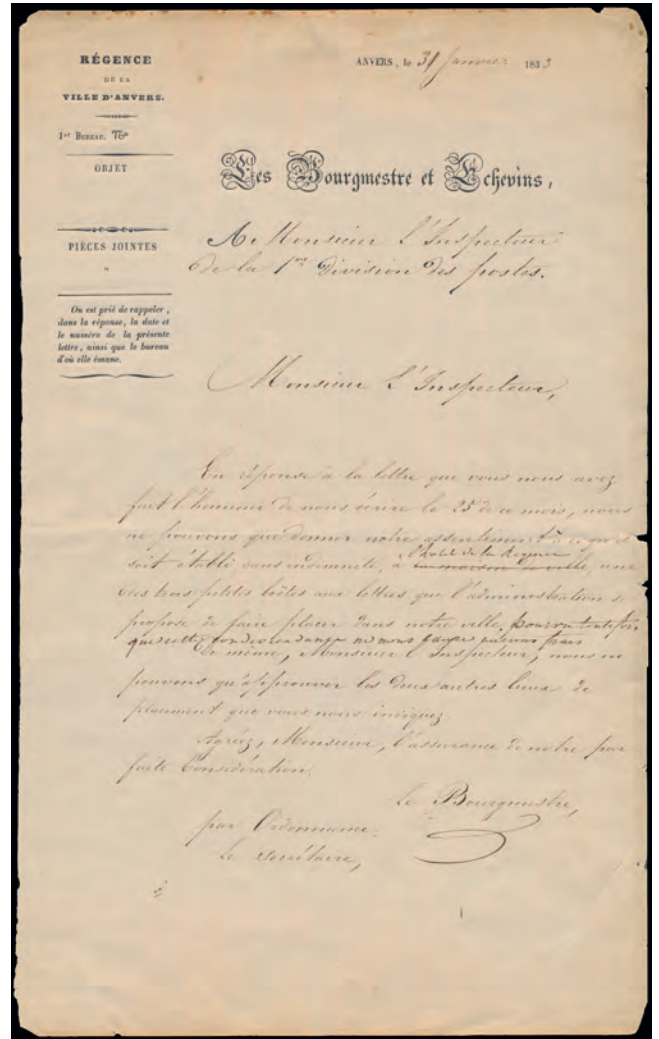 RÉGENCE
DE LA
VILLE D'ANVERS.
1er Bureau. No
OBJET
PIÈCES JOINTES
"
On est prié de rappeler,
dans la réponse, la date et
le numéro de la présente
lettre, ainsi que le bureau
d'où elle émane.
ANVERS, le 31 Janvier 1833
Les Bourgmestre et Echevins,
A Monsieur l'Inspecteur
de la 1re Division des postes.
Monsieur l'Inspecteur,
En réponse à la lettre que vous nous avez
fait l'honneur de nous écrire le 25 de ce mois, nous
ne pouvons que donner notre assentiment à ce qu'il
l'hôtel de la Régence
soit établi sans indemnité, à la maison de ville, une
des trois petites boîtes aux lettres que l'administration se
propose de faire placer dans notre ville, pourvu toutefois
que cette frais
De même, Monsieur l'Inspecteur, nous ne
pouvons qu'approuver les deux autres lieux de
placement que vous nous indiquez.
Agréez, Monsieur, l'assurance de notre par
faite Considération.
Le Bourgmestre,
par Ordonnance
Le Secrétaire,